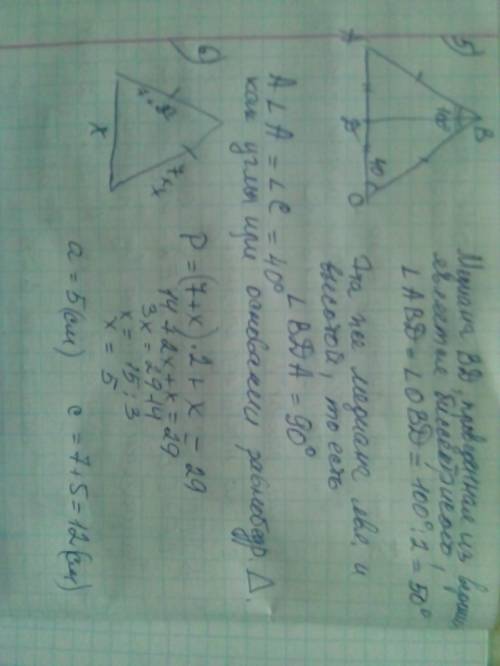 5)
B
100°
40
A
D
C
Медиана BD, проведенная из
является биссектрисой,
∠ABD = ∠CBD = 100° : 2 = 50°
Эта же медиана явл. и
высотой, то есть
∠BDA = 90°
∠A = ∠C = 40°
как углы при основании равнобедр Δ.
6)
7+x
x
P = (7+x)·2 + x = 29
14 + 2x + x = 29
3x = 29-14
x = 15 : 3
x = 5
a = 5 (см)
c = 7+5 = 12 (см)